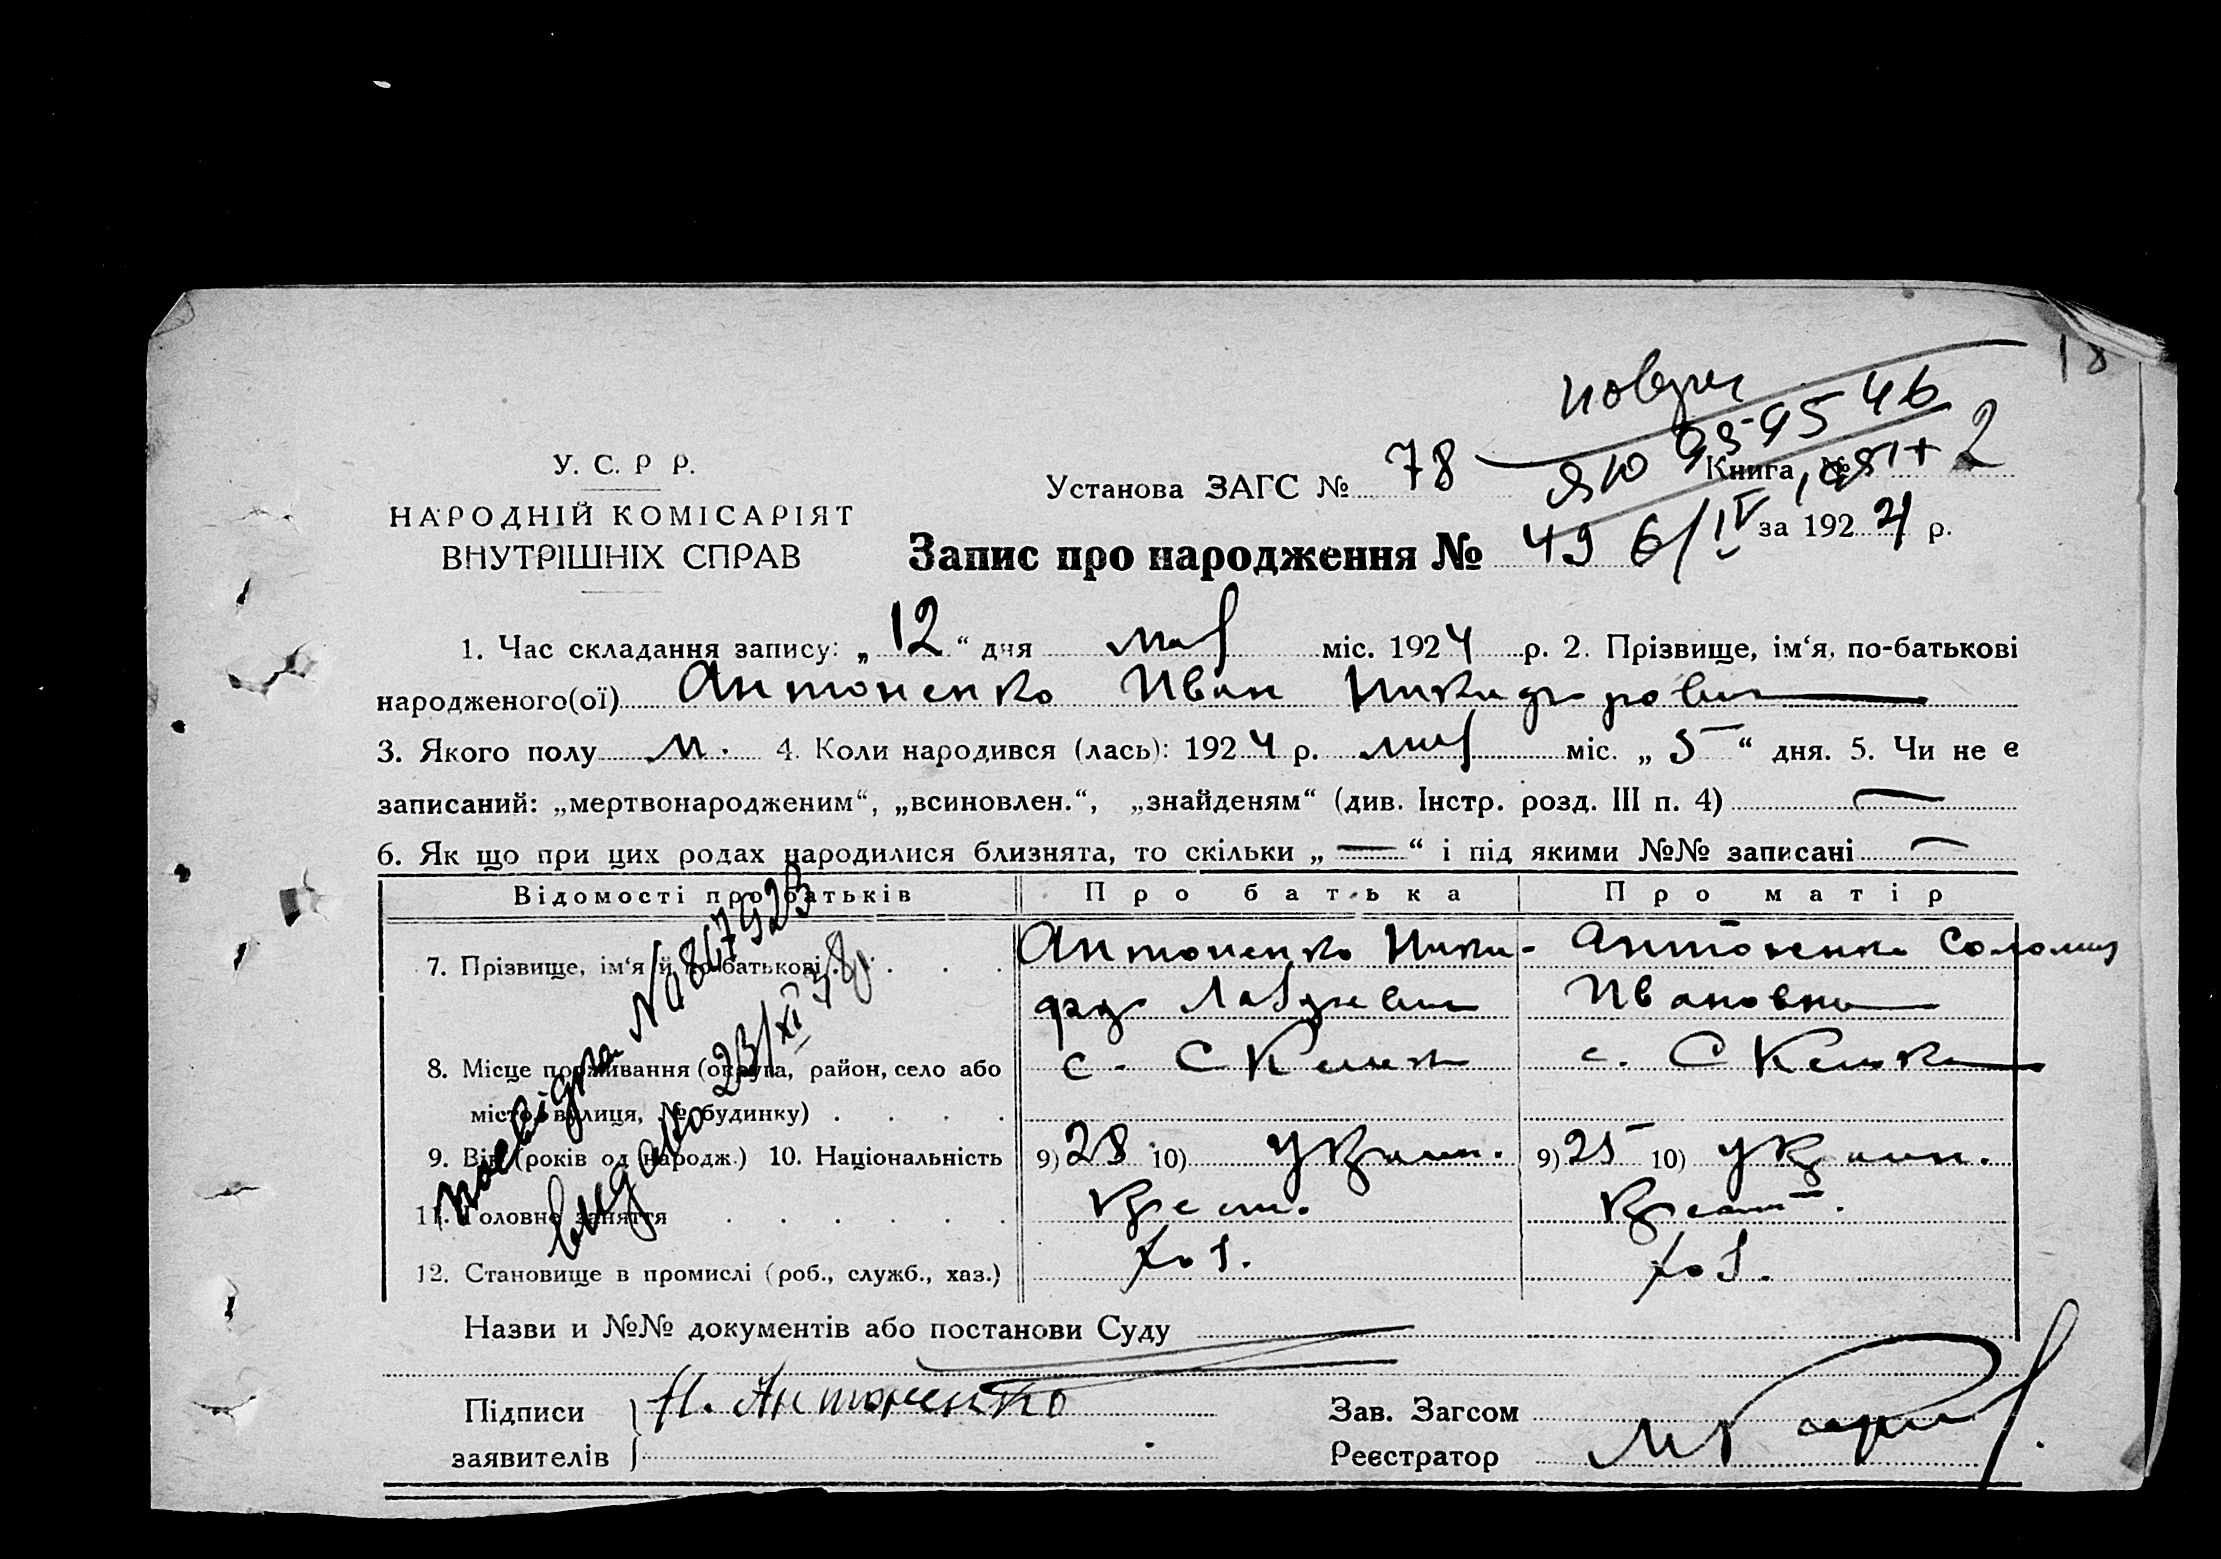 18
У. С. Р Р.
НАРОДНІЙ КОМІСАРІЯТ
ВНУТРІШНІХ СПРАВ
Установа ЗАГС № 78
Книга № 2
ЯЮ 95-95 46
Запис про народження № 49 6/IV за 1924 р.
1. Час складання запису: „ 12 “ дня мар міс. 1924 р. 2. Прізвище, ім‘я, по-батькові
народженого(ої) Антоненко Иван Никифорович
3. Якого полу м. 4. Коли народився (лась): 1924 р. мар міс. „ 5 “ дня. 5. Чи не є
записаний: „мертвонародженим“, „всиновлен.“, „знайденям“ (див. Інстр. розд. III п. 4) —
6. Як що при цих родах народилися близнята, то скільки „ — “ і під якими №№ записані —
Відомості про батьків Про батька Про матір
7. Прізвище, ім‘я й по-батькові Антоненко Ники- Антоненко Соломия
фор Ивановна
8. Місце проживання (округа, район, село або с. с.
місто, вулиця, № будинку)
9. Вік (років од народж.) 10. Національність 9) 28 10) Украин. 9) 25 10) Украин.
11. Головне заняття Крест. Крест.
12. Становище в промислі (роб., служб., хаз.) хоз. хоз.
видано 23/XI 38р.
Назви и №№ документів або постанови Суду
Підписи Н. Антоненко Зав. Загсом
заявителів Реєстратор